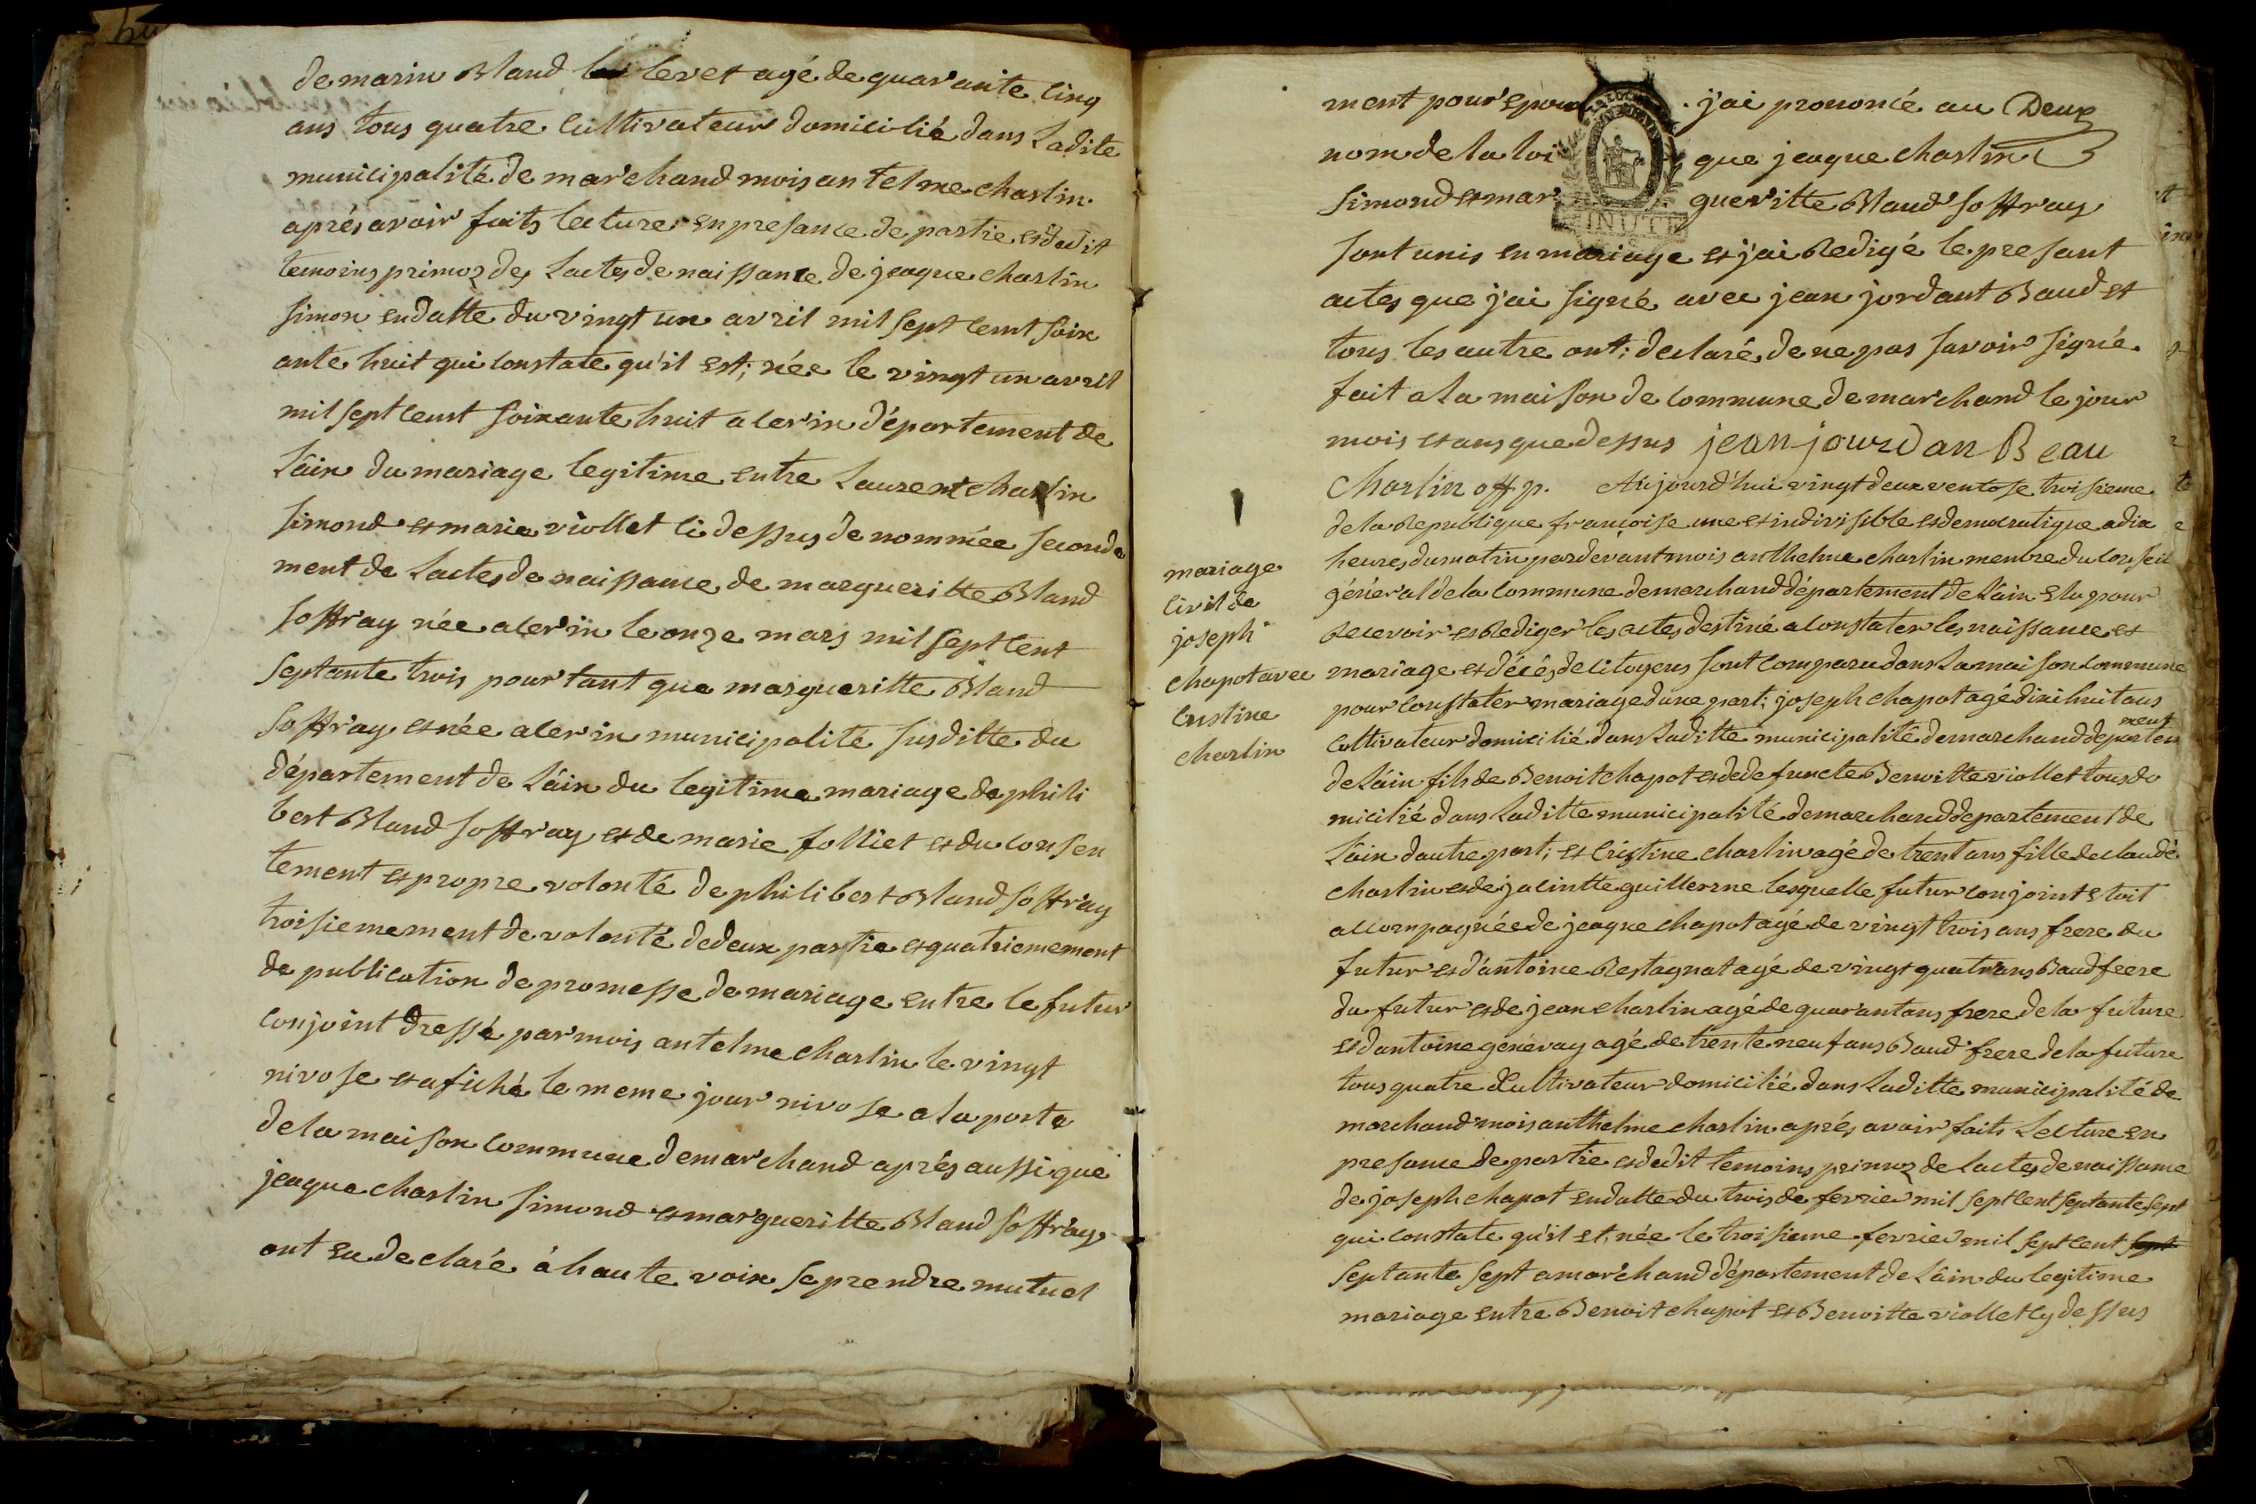 de marin Bland levet agé de quarante cinq
ans tous quatre cultivateur domicilié dans Ladite
municipalité de marchand mois antelme charlin
aprés avoir faits lecture en presance de partie et dedit
temoins primoz de Lactes de naissance de jeaque charlin
simon en datte du vingt un avril mil sept cent soix
ante huit qui constate qu'il est; née le vingt un avril
mil sept cent soixante huit a cerin d'épartement de
L'ain du mariage legitime entre Laurent charlin
simond et marie viollet ci dessus de nommée seconde
ment de Lactes de naissance de margueritte Bland
soffray née a cerin le onze mars mil sept cent
septante trois pour tant que margueritte Bland
soffray et née a cerin municipalité susditte du
département de L'ain du legitime mariage de phili
bert Bland soffray et de marie folliet et du consen
tement et propre volonté de philibert Bland soffray
troisiemement de volonté de deux partie et quatriemement
de publication de promesse de mariage entre le futur
conjoint dressé par mois antelme charlin le vingt
nivose et afiché le meme jour nivose a la porte
de la maison commune de marchand aprés aussi que
jeaque charlin simond et margueritte Bland soffray
ont eu declaré à haute voix se prendre mutuel
ment pour j'ai prononcé au Deux
nom de la loi que jeaque charlin
simond et mar gueritte Bland soffray
sont unis en mariage et j'ai Redigé le presant
actes que j'ai signé avec jean jordant Baud et
tous les autre ont; declaré de ne pas savoir signé
fait a la maison de commune de marchand le jour
mois et ans que dessus jean jourdan Beau
Charlin off p. Aujourd'hui vingt deux ventose troisieme
de la Republique françoise une et indivisible et democratique a dix
heures du matin par devant mois anthelme charlin menbre du conseil
général de la commune de marchand département de L'ain elu pour
Recevoir et Rediger les actes destiné a constater les naissance et
mariage et décés de citoyens sont comparu dans La maison commune
pour constater mariage dune part; joseph chapot agé dixi huit ans
Cultivateur domicilié dans Laditte municipalité de marchand departem
ment
de L'ain fils de Benoit chapot et de defuncte Benoitte viollet tous do
micilié dans Laditte municipalité de marchand departement de
L'ain dautre part; et Cristine charlin agé de trent ans fille de claude
charlin et de jacintte guillerme lesquelle futur conjoint etoit
accompagnée de jeaque chapot agé de vingt trois ans frere du
futur et d'antoine Restagnat agé de vingt quatr ans Baud frere
du futur et de jean charlin agé de quarant ans frere de la future
et dantoine génévay agé de trente neuf ans Baud frere de la future
tous quatre Cultivateur domicilié dans Laditte municipalité de
marchand mois anthelme charlin aprés avoir faits Lecture en
presance de partie et dedit temoins primoz de Lactes de naissance
de joseph chapot en datte du trois de fevrier mil sept cent septante sept
qui constate qu'il et; née le troisieme fevrier mil sept cent sept
septante sept a marchand département de L'ain du legitime
mariage entre Benoit chapot et Benoitte viollet cy dessus
mariage
civil de
joseph
chapot avec
Cristine
charlin